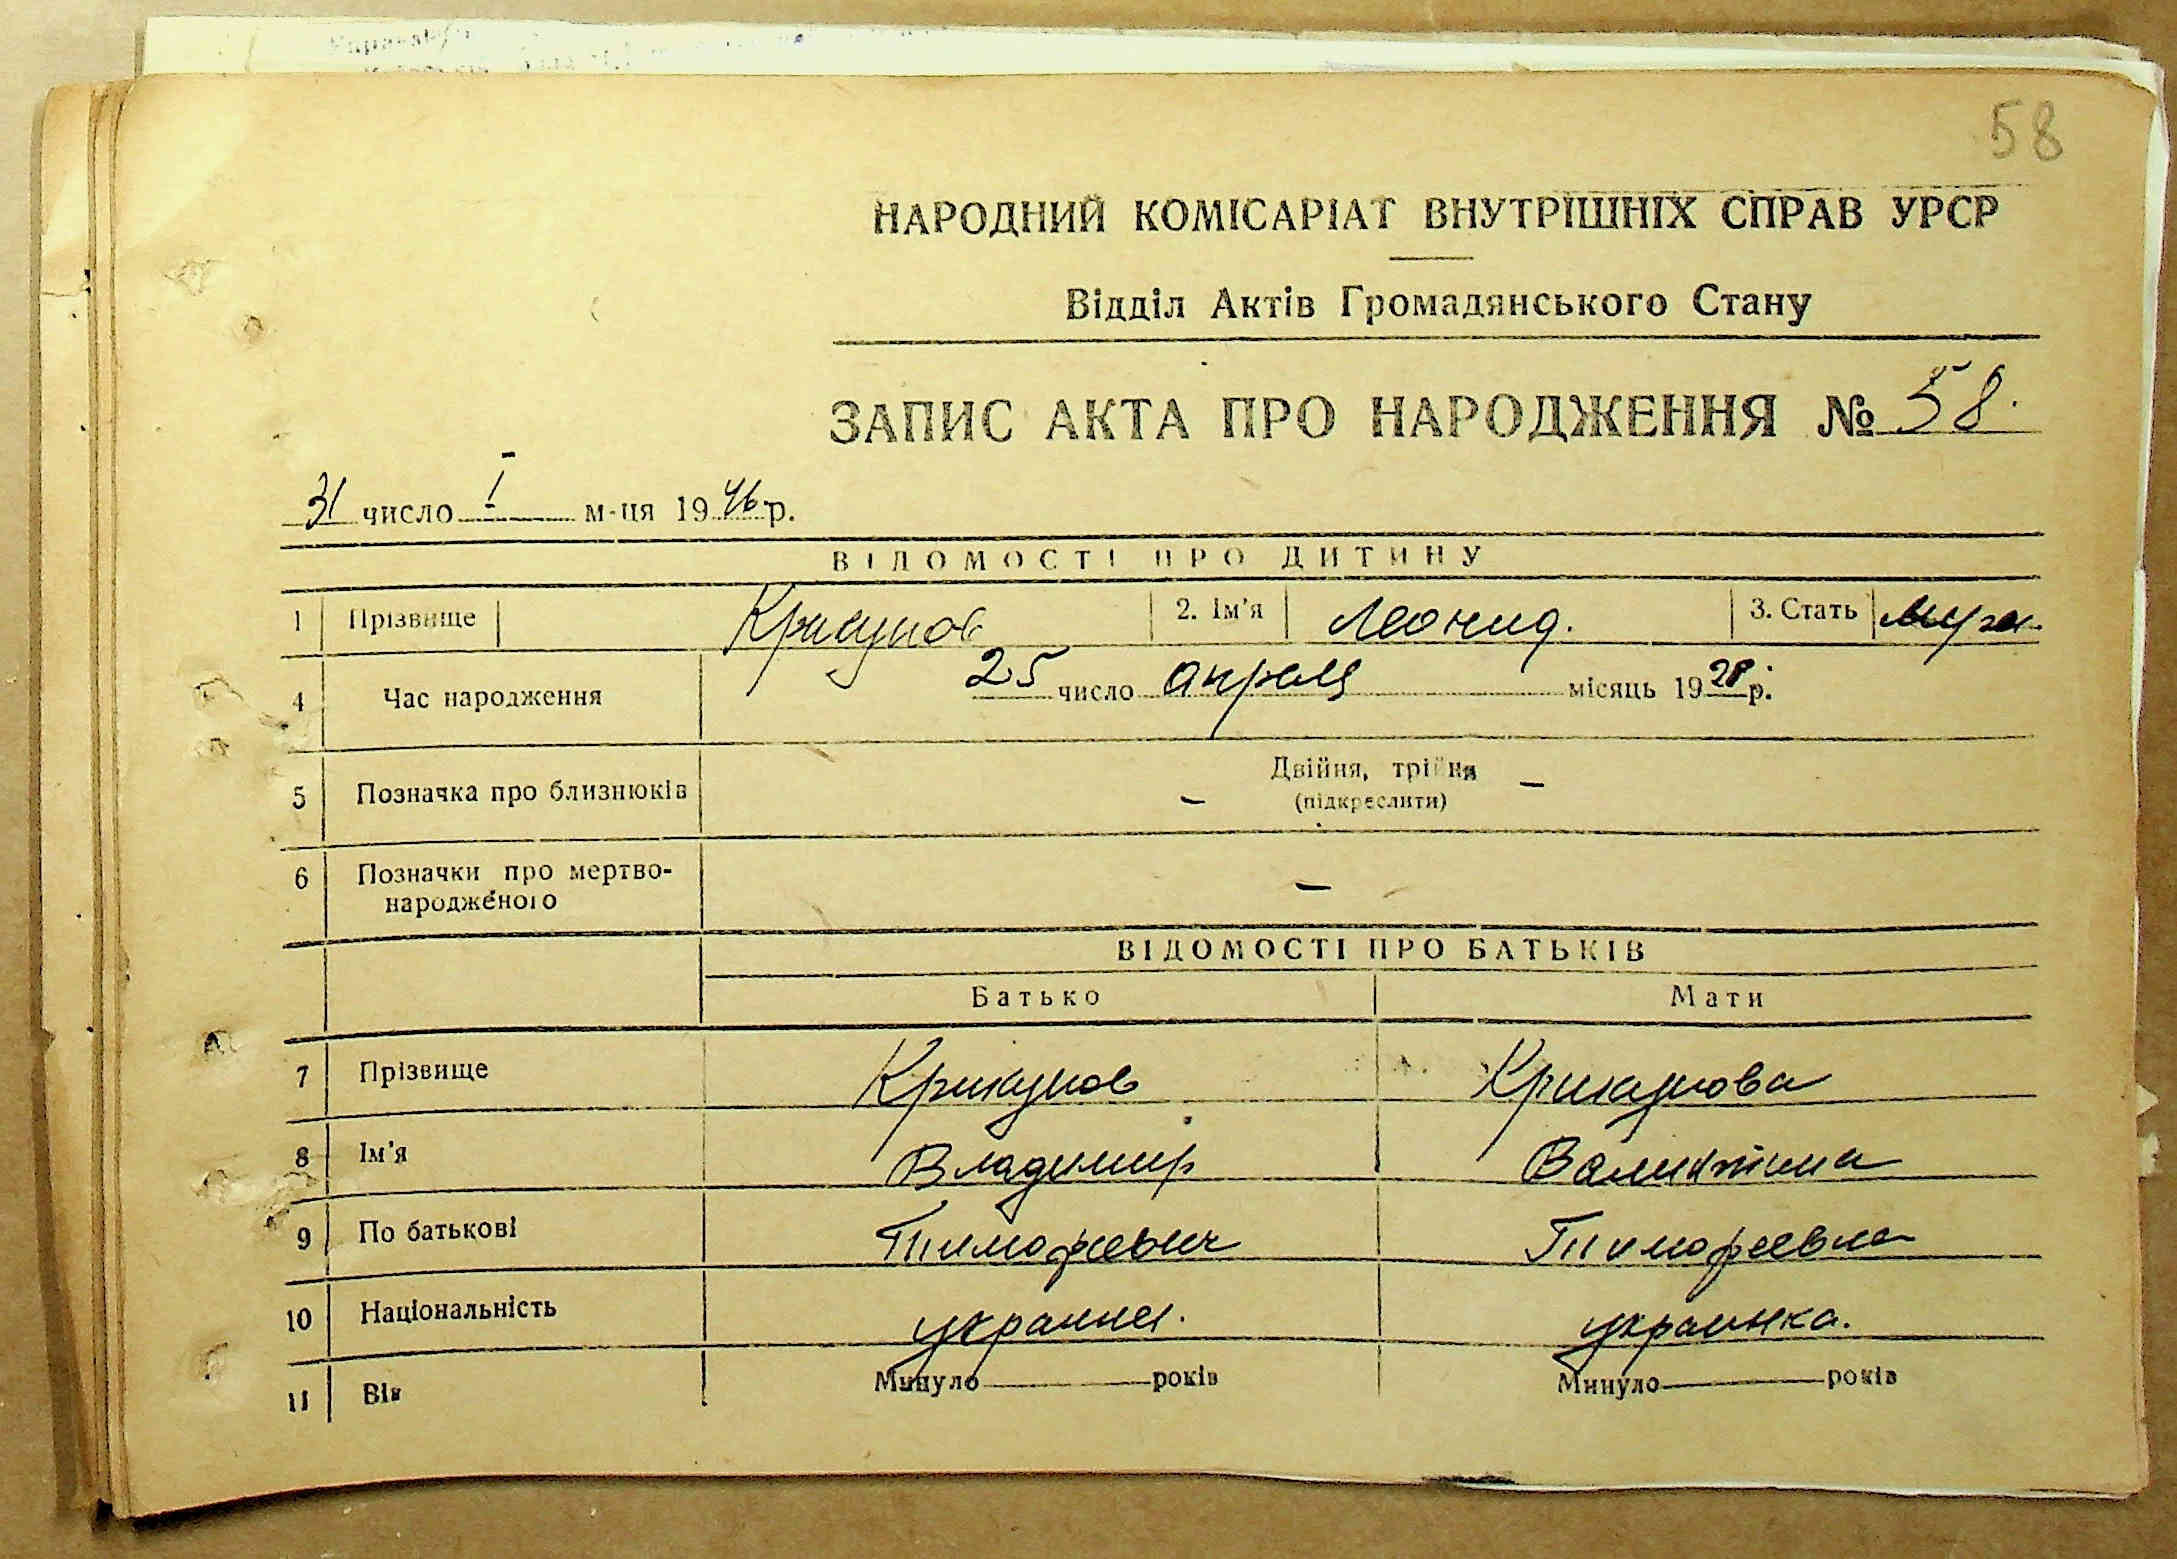 58
НАРОДНИЙ КОМІСАРІАТ ВНУТРІШНІХ СПРАВ УРСР
Відділ Актів Громадянського Стану
ЗАПИС АКТА ПРО НАРОДЖЕННЯ № 58.
31 число I м-ця 1946 р.
ВІДОМОСТІ ПРО ДИТИНУ
1 Прізвище Крикунов 2. Ім'я Леонид. 3. Стать муж.
4 Час народження 25 число апреля місяць 1928 р.
5 Позначка про близнюків – Двійня, трійня –
(підкреслити)
6 Позначки про мертво-
народженого –
ВІДОМОСТІ ПРО БАТЬКІВ
Батько Мати
7 Прізвище Крикунов Крикунова
8 Ім'я Владимир Валинтина
9 По батькові Тимофеевич Тимофеевна
10 Національність украинец. украинка.
11 Вік Минуло — років Минуло — років